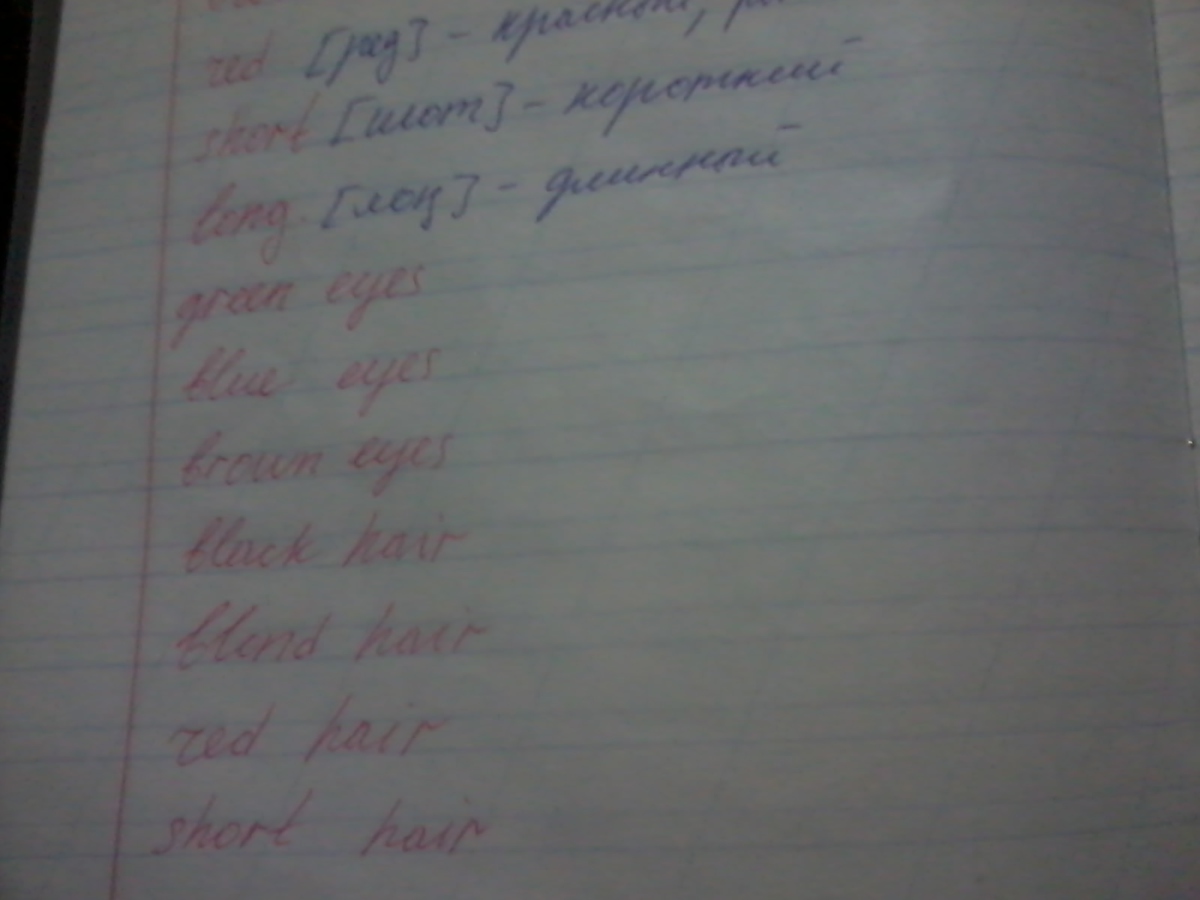 red [ред] - красный,
short [шот] - короткий
long [лоң] - длинный
green eyes
blue eyes
brown eyes
black hair
blond hair
red hair
short hair